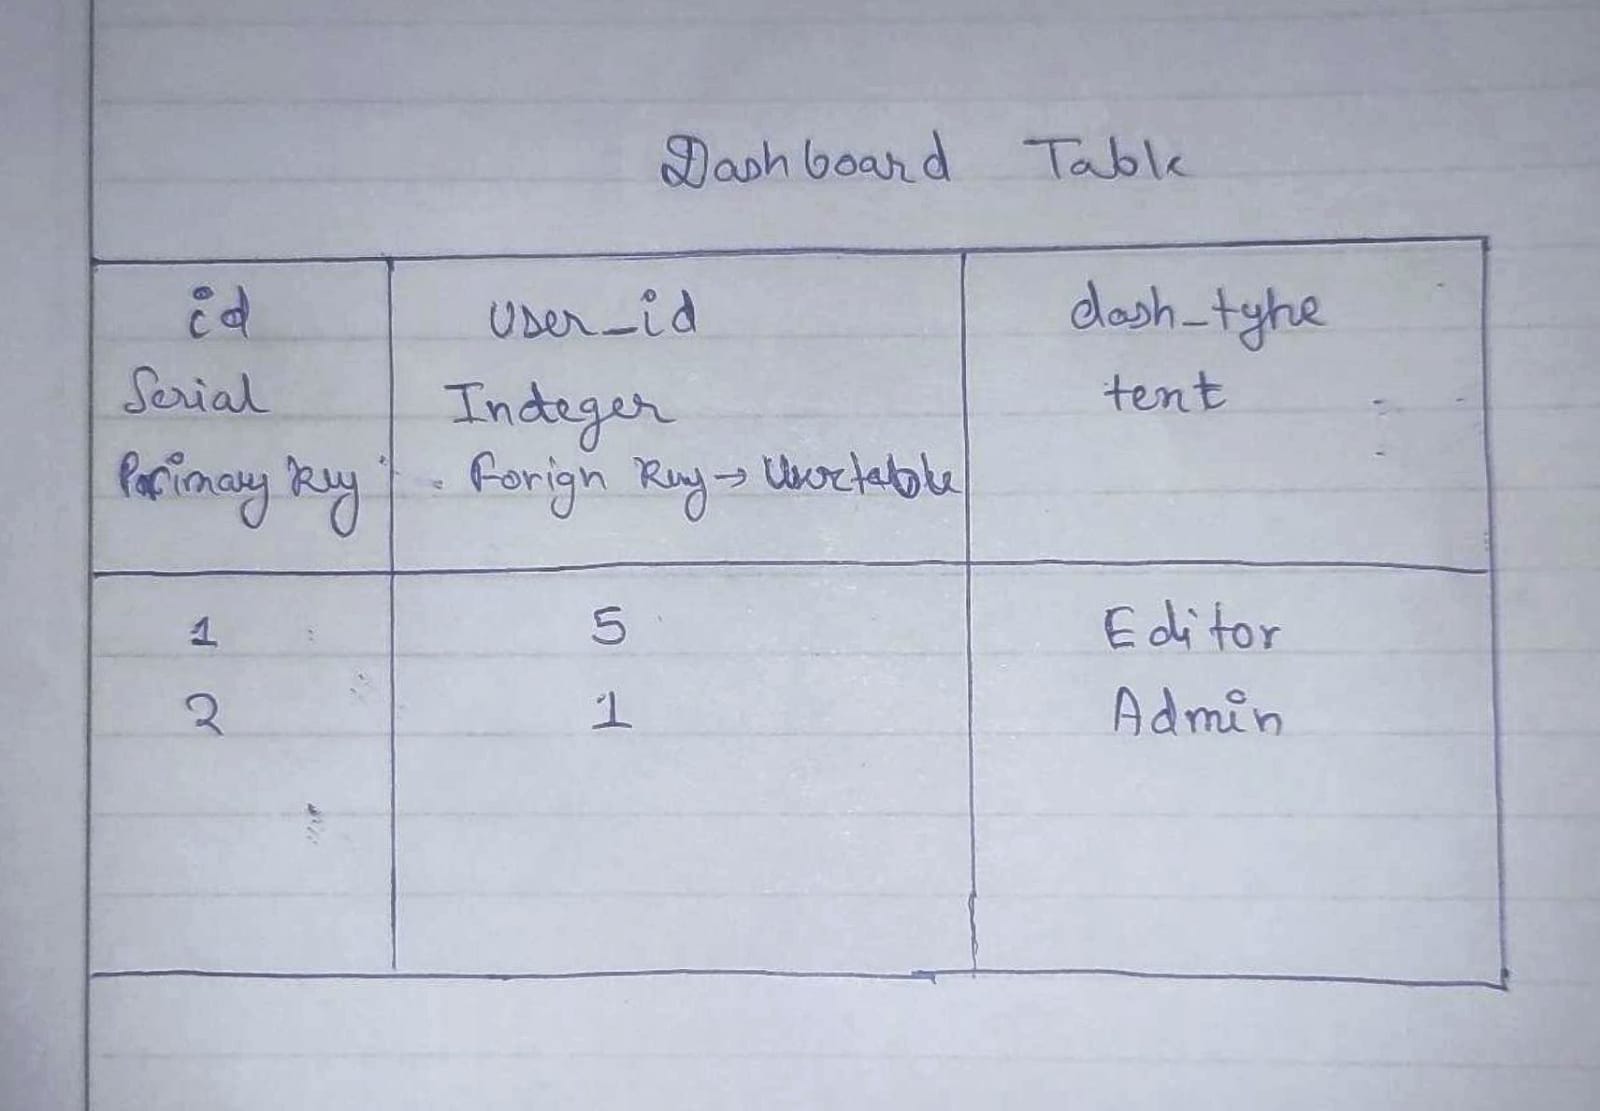 Dashboard Table
id user_id dash_type
Serial Indeger text
Primary key Forign key → Usertable
1 5 Editor
2 1 Admin